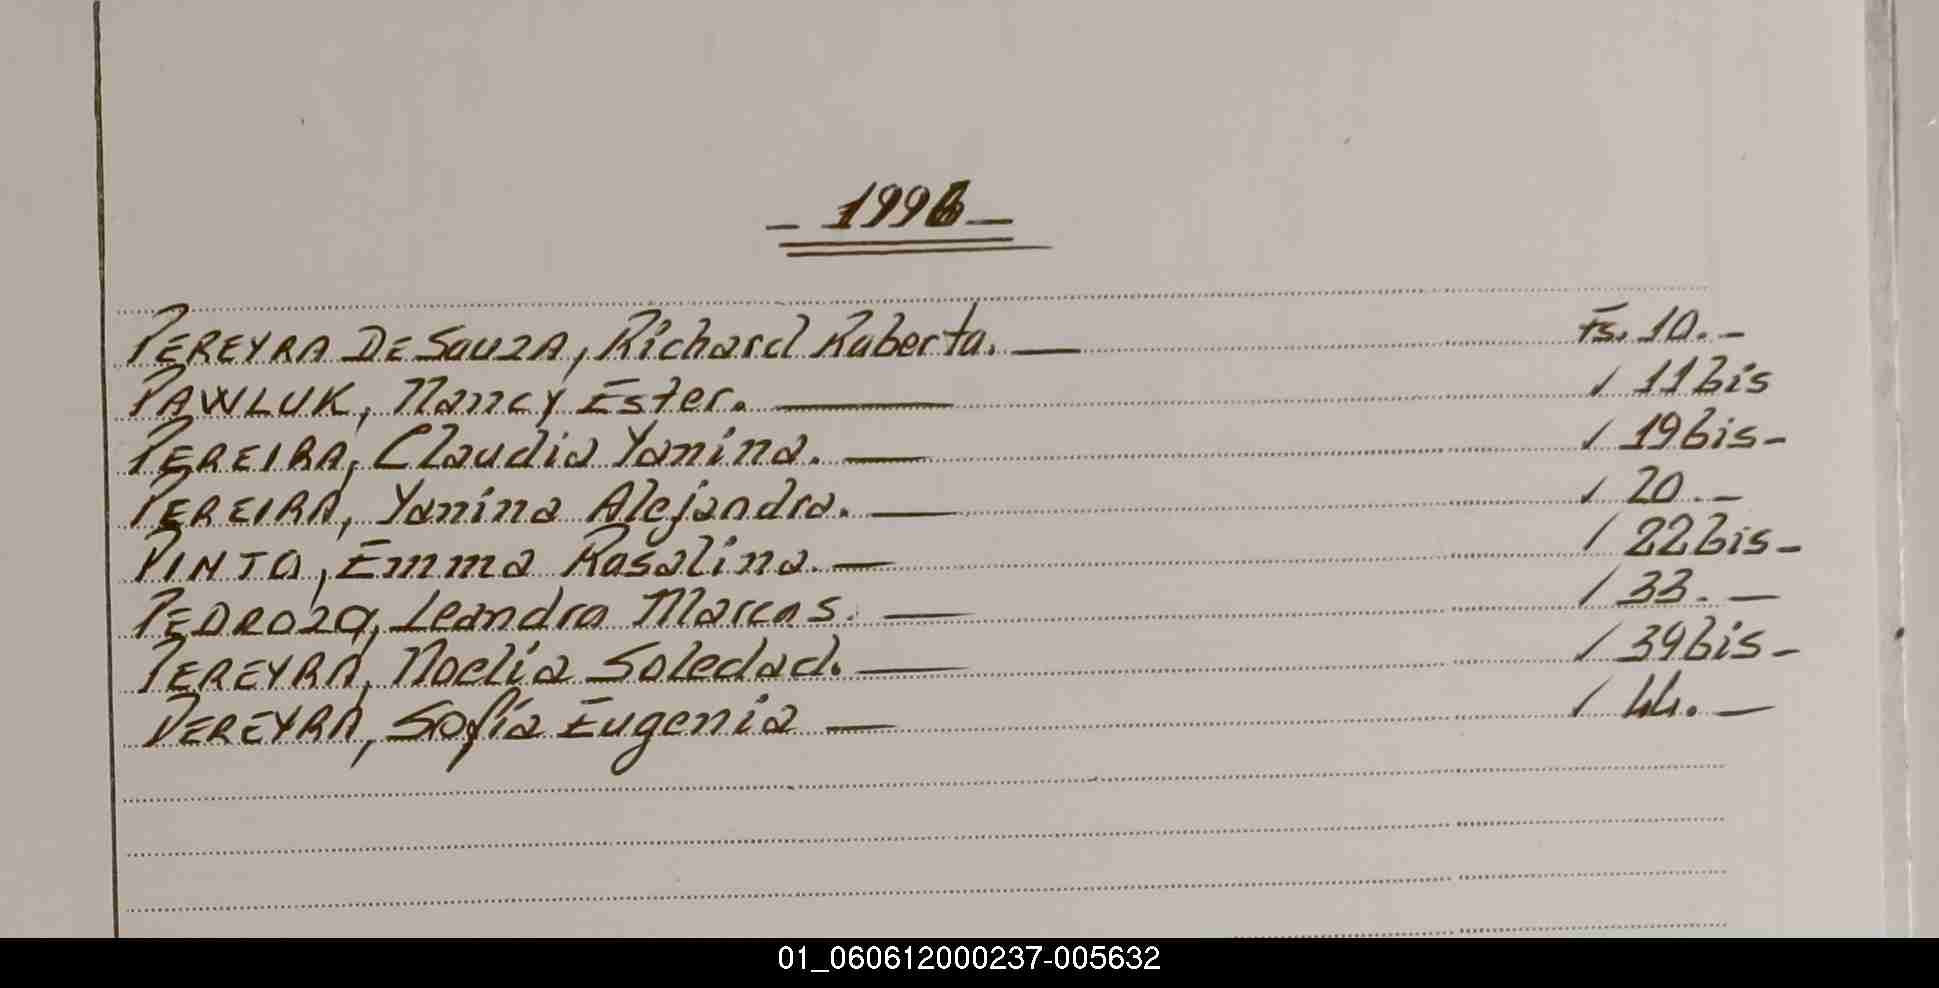 - 1996 -
PEREYRA DE SOUZA, Richard Roberto. — Fs. 10. -
PAWLUK, Nancy Ester. — / 11 bis
PEREIRA, Claudia Yanina. — / 19 bis -
PEREIRA, Yanina Alejandra. — / 20. -
PINTO, Emma Rosalina. — / 22 bis -
PEDROZO, Leandro Marcos. — / 33. —
PEREYRA, Noelia Soledad. — / 39 bis -
PEREYRA, Sofía Eugenia — / 44. —
01_060612000237-005632